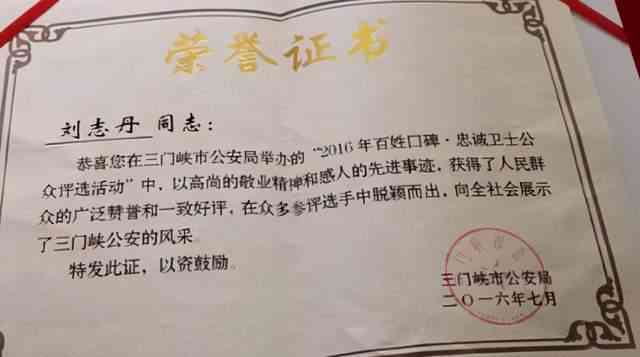 荣誉证书
刘志丹 同志：
恭喜您在三门峡市公安局举办的“2016年百姓口碑·忠诚卫士公
众评选活动”中，以高尚的敬业精神和感人的先进事迹，获得了人民群
众的广泛赞誉和一致好评，在众多参评选手中脱颖而出，向全社会展示
了三门峡公安的风采。
特发此证，以资鼓励。
三门峡市公安局
二〇一六年七月